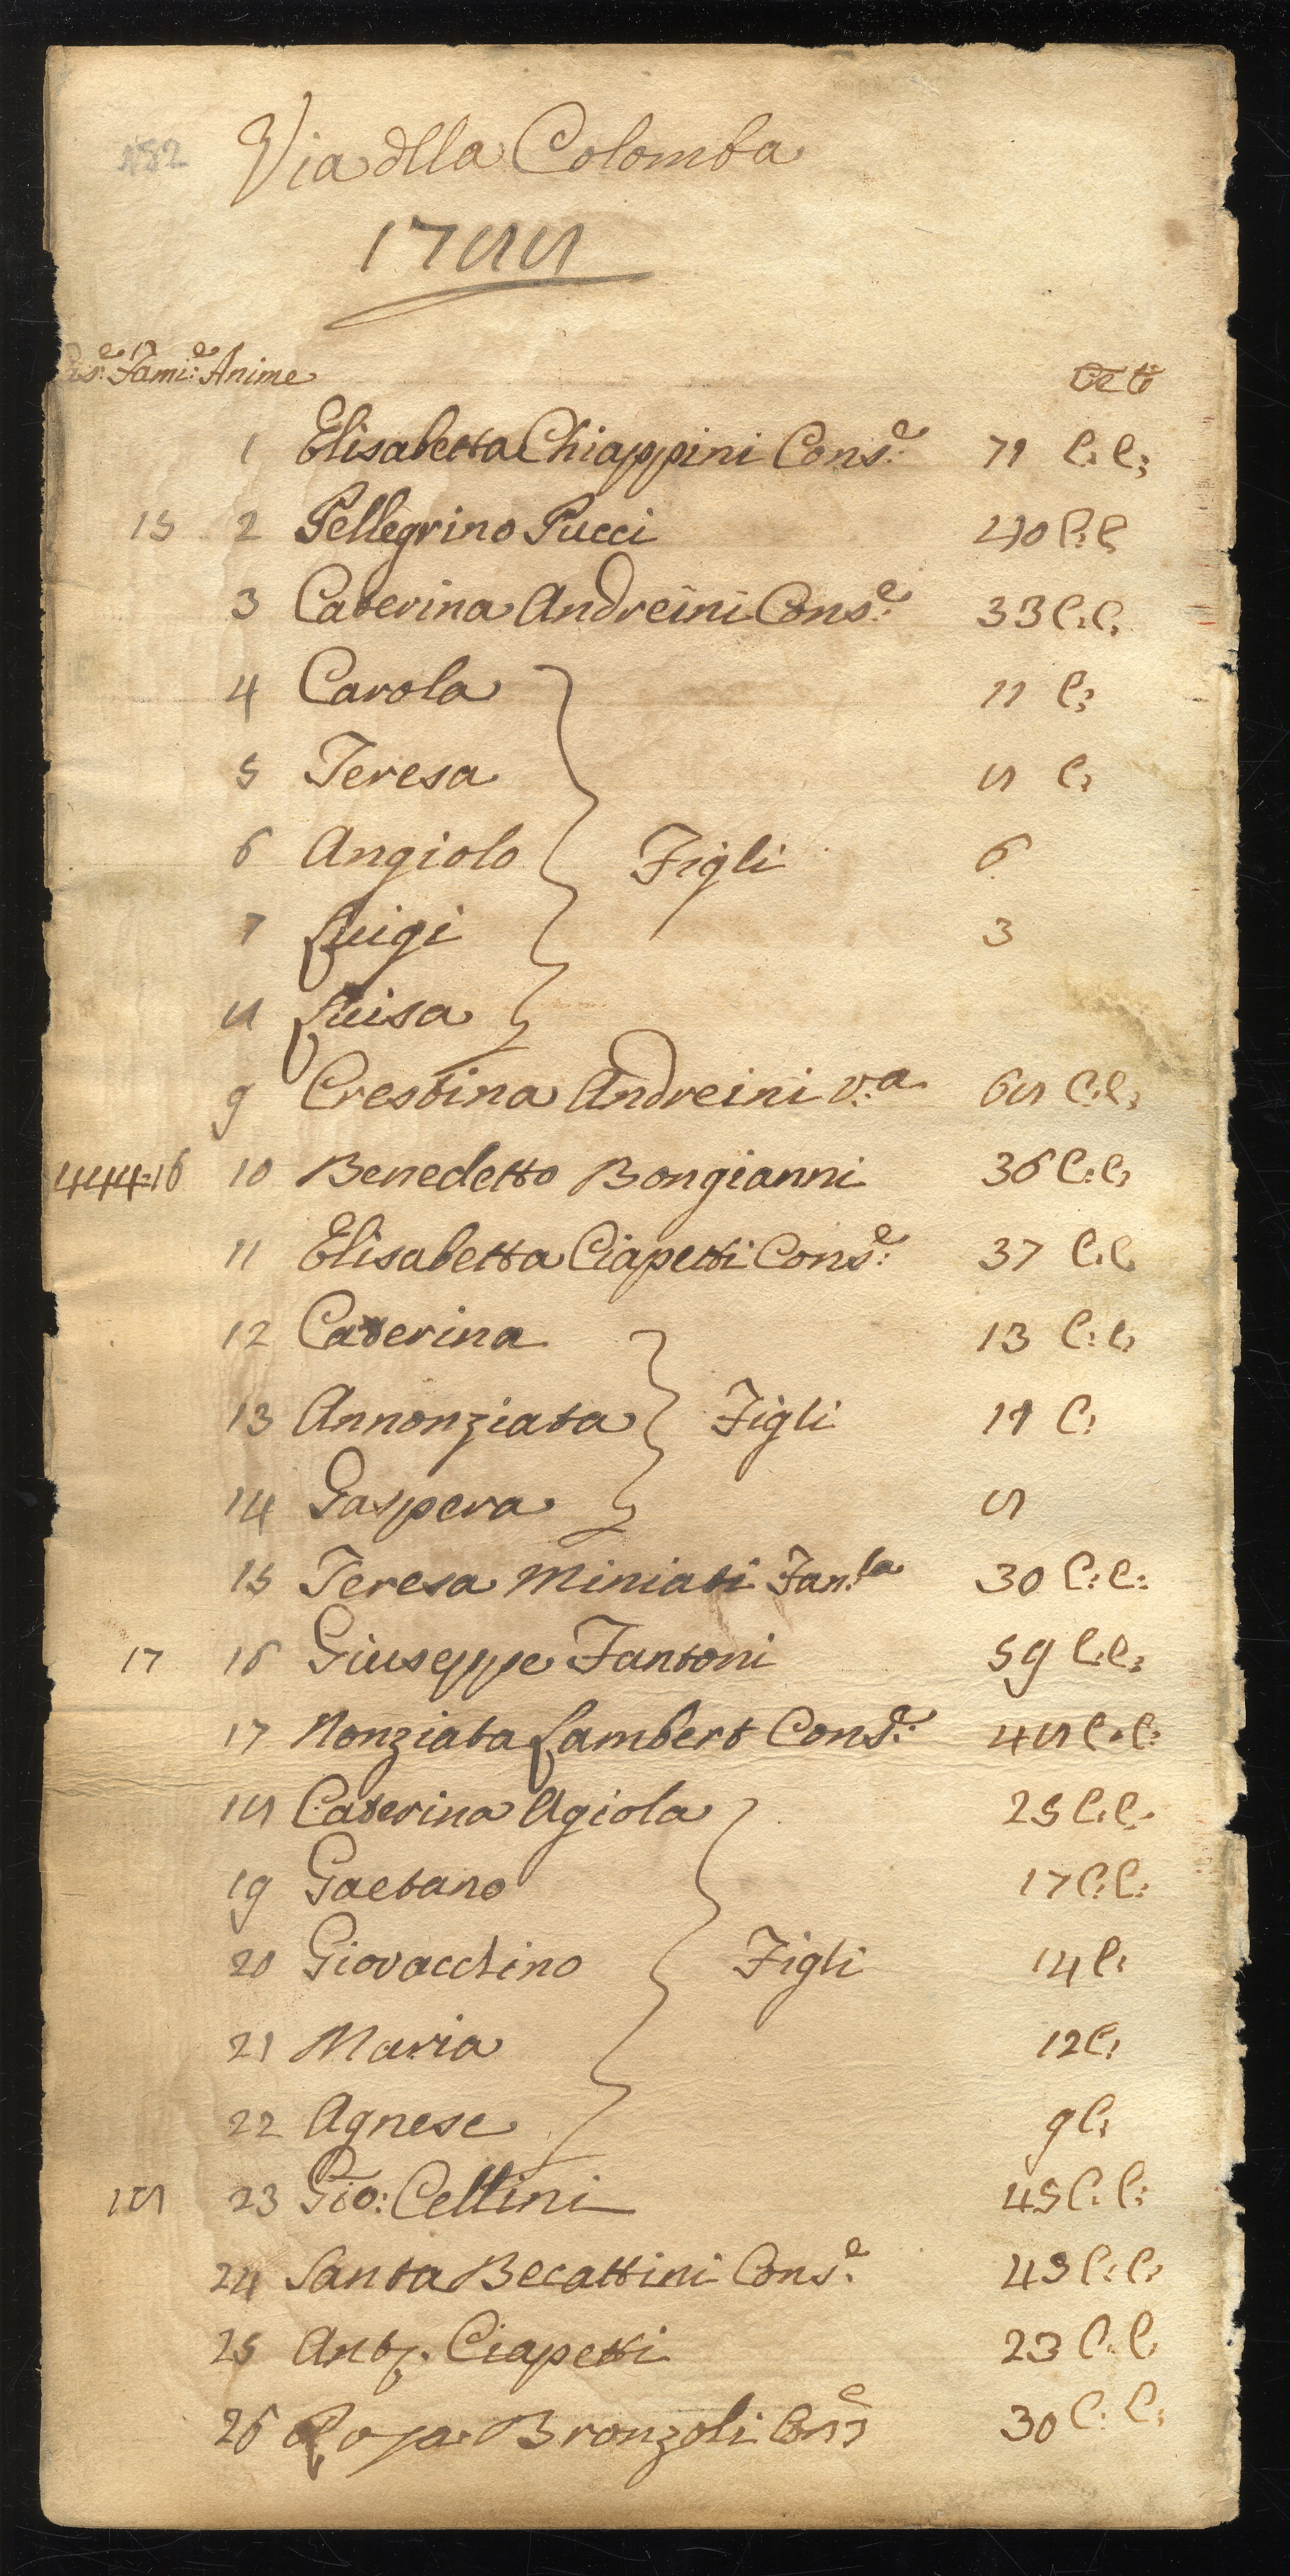 182 Via dlla Colomba
1788
Cas:e Fami:e Anime Età
1 Elisabetta Chiappini Cons:e 71 C:C:
15 2 Pellegrino Pucci 40 C:C
3 Caterina Andreini Cons:e 33 C:C:
4 Carola 11 C:
5 Teresa 8 C:
6 Angiolo Figli 6
7 Luigi 3
8 Luisa
9 Crestina Andreini v:a 68 C:C:
444:16 10 Benedetto Bongianni 36 C:C:
11 Elisabetta Ciapetti Cons:e 37 C:C
12 Caterina 13 C:C:
13 Annonziata Figli 11 C:
14 Gaspera 8
15 Teresa Miniati Fan:la 30 C:C:
17 16 Giuseppe Fantoni 59 C:C:
17 Nonziata Lambert Cons:e 48 C:C:
18 Caterina Agiola 25 C:C:
19 Gaetano 17 C:C:
20 Giovacchino Figli 14 C:
21 Maria 12 C:
22 Agnese 9 C:
18 23 Gio: Cellini 45 C:C:
24 Santa Becattini Cons:e 43 C:C:
25 Ant:o Ciapetti 23 C:C
26 Rosa Bronzoli Cons:e 30 C:C: